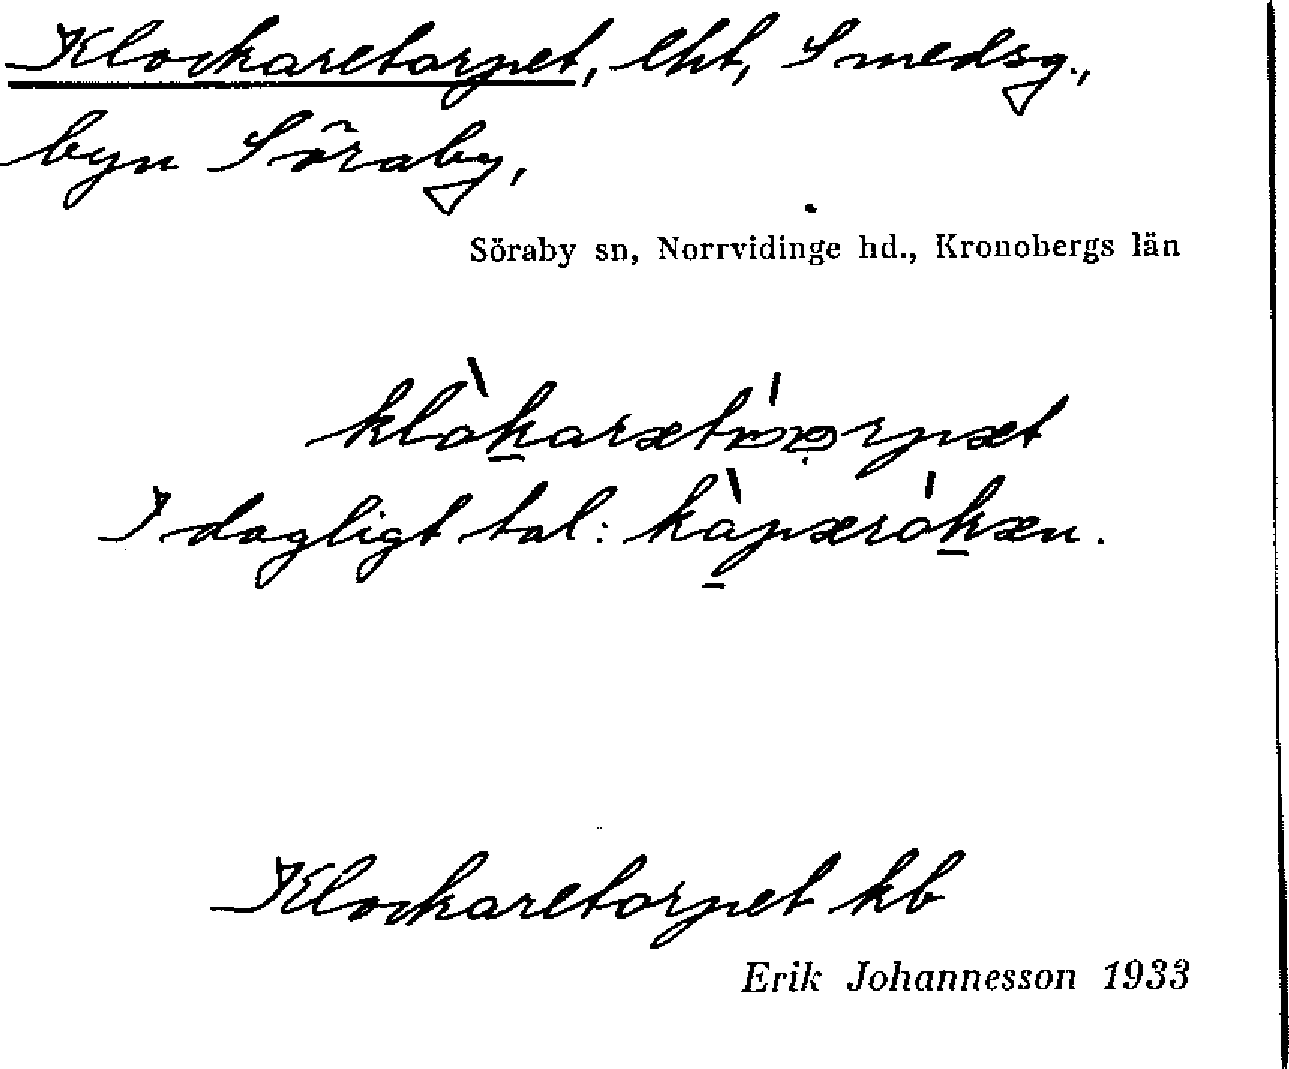 Klockaretorpet, lht, Smedsg.,
byn Söraby,
Söraby sn, Norrvidinge hd., Kronobergs län
I dagligt tal: kàpæròkæn.
Klockaretorpet kb
Erik Johannesson 1933